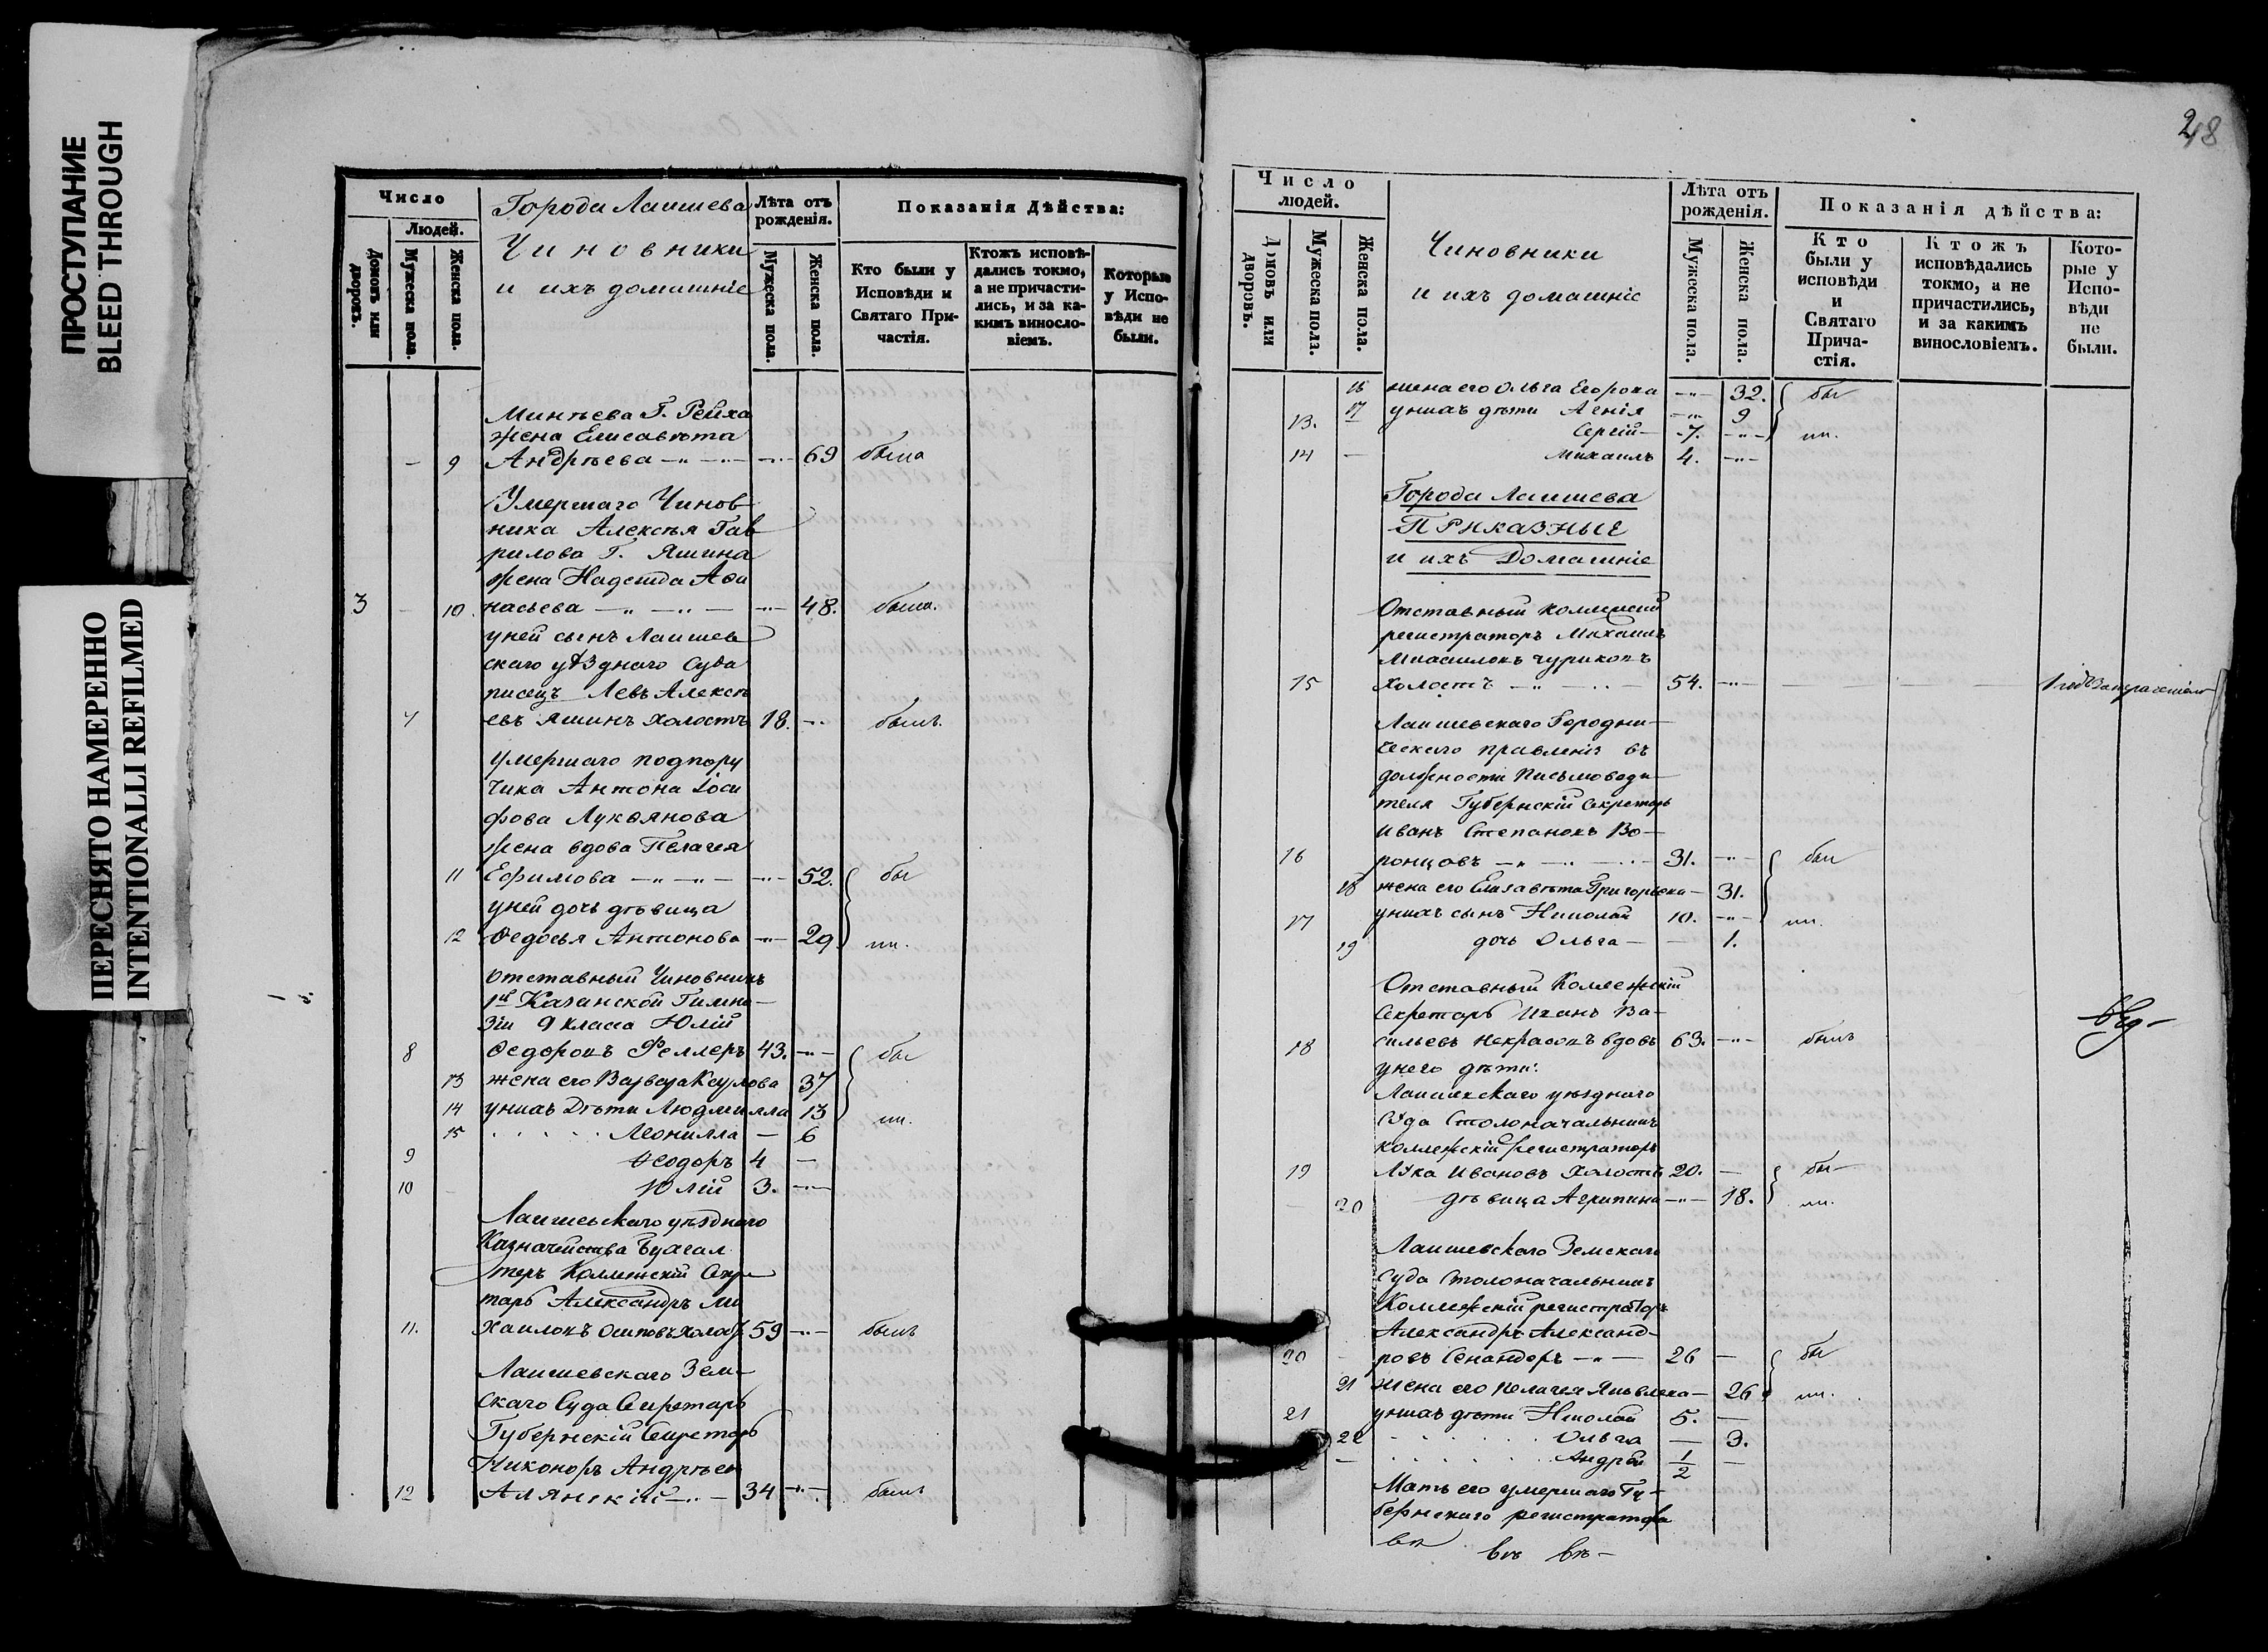 ПРОСТУПАНИЕ
BLEED THROUGH
ПЕРЕСНЯТО НАМЕРЕННО
INTENTIONALLI REFILMED
Число
Людей.
Домовъ или дворовъ.
Мужеска пола.
Женска пола.
Города Лаишева
Чиновники
и ихъ домашніе
Лѣта отъ рожденія.
Мужеска пола.
Женска пола.
Показанія Дѣйства:
Кто были у Исповѣди и Святаго Причастія.
Ктожъ исповѣдались токмо, а не причастились, и за какимъ винословіемъ.
Которые у Исповѣди не были.
жена Елисавѣта
— 9 Андрѣева —"— —"— —"— 69 была
Умершаго Чинов
ника Алексѣя Гав
рилова Г. Яшина
жена Надежда Афа
3 — 10. насьева —"— —"— —"— 48. была.
уней сынъ Лаишев
скаго уѣзднаго Суда
писецъ Левъ Алексѣ
7 евъ Яшинъ холостъ 18. —"— былъ
умершаго подпору
чика Антона Іоси
фова Лукоянова
жена вдова Пелагея
11 Ефимова —"— —"— —"— 52. бы
уней дочь дѣвица
12 Ѳедосья Антонова —"— 29 ли.
Отставный Чиновникъ
1й Казанской Гимна-
зіи 9 класса Юлій
8 Ѳедоровъ Феллеръ 43. —"— бы
13 жена его Варвара Карлова 37
14 унихъ Дѣти Людмилла 13 ли.
15 Леонилла — 6
9 Ѳеодоръ 4 —
10 Юлій 3. —"—
Лаишевскаго уѣзднаго
Казначейства Бухгал
теръ Коллежскій Секре
тарь Александръ Ми
11. хаиловъ Осиповъ холос. 59 —"— былъ
Лаишевскаго Зем-
скаго Суда Секретарь
Губернскій Секретарь
Никоноръ Андрѣев
12 Алянскій —"— 34 —"— былъ
28
Число людей.
Домовъ или дворовъ.
Мужеска пола.
Женска пола.
Чиновники
и ихъ домашніе
Лѣта отъ рожденія.
Мужеска пола.
Женска пола.
Показанія дѣйства:
Кто были у исповѣди и Святаго Причастія.
Ктожъ исповѣдались токмо, а не причастились, и за какимъ винословіемъ.
Которые у Исповѣди не были.
16 жена его Ольга Егорова —"— 32. бы
17 унихъ дѣти Агнія —"— 9
13. Сергій — 7. —"— ли.
14 — Михаилъ 4. —"—
Города Лаишева
Приказные
и ихъ Домашніе
Отставный Коллежскій
регистраторъ Михаилъ
15 холостъ —"— 54. —"—
Лаишевскаго Городни-
ческаго правленія въ
должности Письмоводи-
теля Губернскій Секретарь
Иванъ Степановъ Во-
16 ронцовъ —"— 31. —"— бы
18 жена его Елизавѣта Григорьева — 31.
17 унихъ сынъ Николай 10. —"— ли.
19 дочь Ольга — — 1.
Отставный Коллежскій
Секретарь Иванъ Ва-
18 сильевъ Некрасовъ вдовъ 63. —"— былъ
унего дѣти:
Лаишевскаго уѣзднаго
Суда Столоначальникъ
Коллежскій регистраторъ
19 Лука Ивановъ холостъ 20. — бы
— 20 дѣвица Агрипина —"— 18. ли.
Лаишевскаго Земскаго
Суда Столоначальникъ
Коллежскій регистраторъ
Александръ Александ-
20 ровъ —"— 26 — бы
21 жена его Пелагея Яковлева — 26 ли.
21 унихъ дѣти Николай 5. —
22 Ольга — 3.
Андрей 1/2 —
Мать его умершаго Гу-
бернскаго регистратора